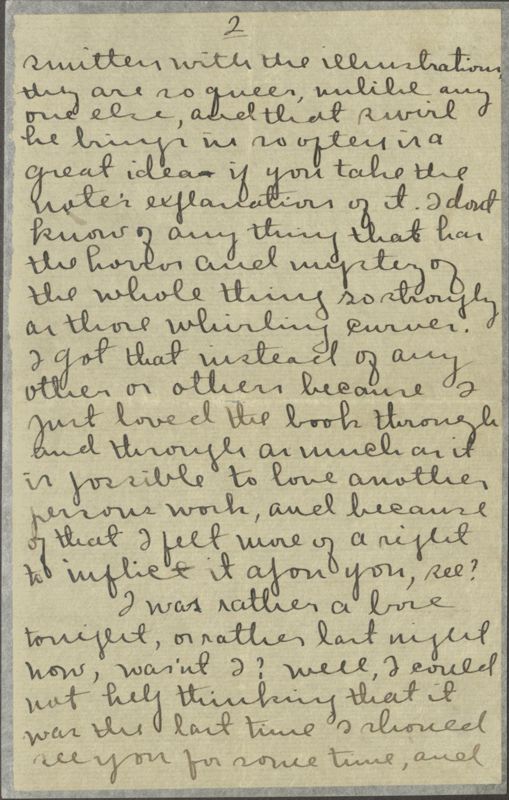 2
smitten with the illustrations,
they are so queer, unlike any
one else, and that swirl
he brings in so often is a
great idea if you take the
note's explanation of it. I dont
know of any thing that has
the horror and mystery of
the whole thing so strongly
as those whirling curves.
I got that instead of any
other or others because I
just loved the book through
and through as much as it
is possible to love another
persons work, and because
of that I felt more of a right
to inflict it upon you, see?
I was rather a bore
tonight, or rather last night
now, wasn't I? Well, I could
not help thinking that it
was the last time I should
see you for some time, and